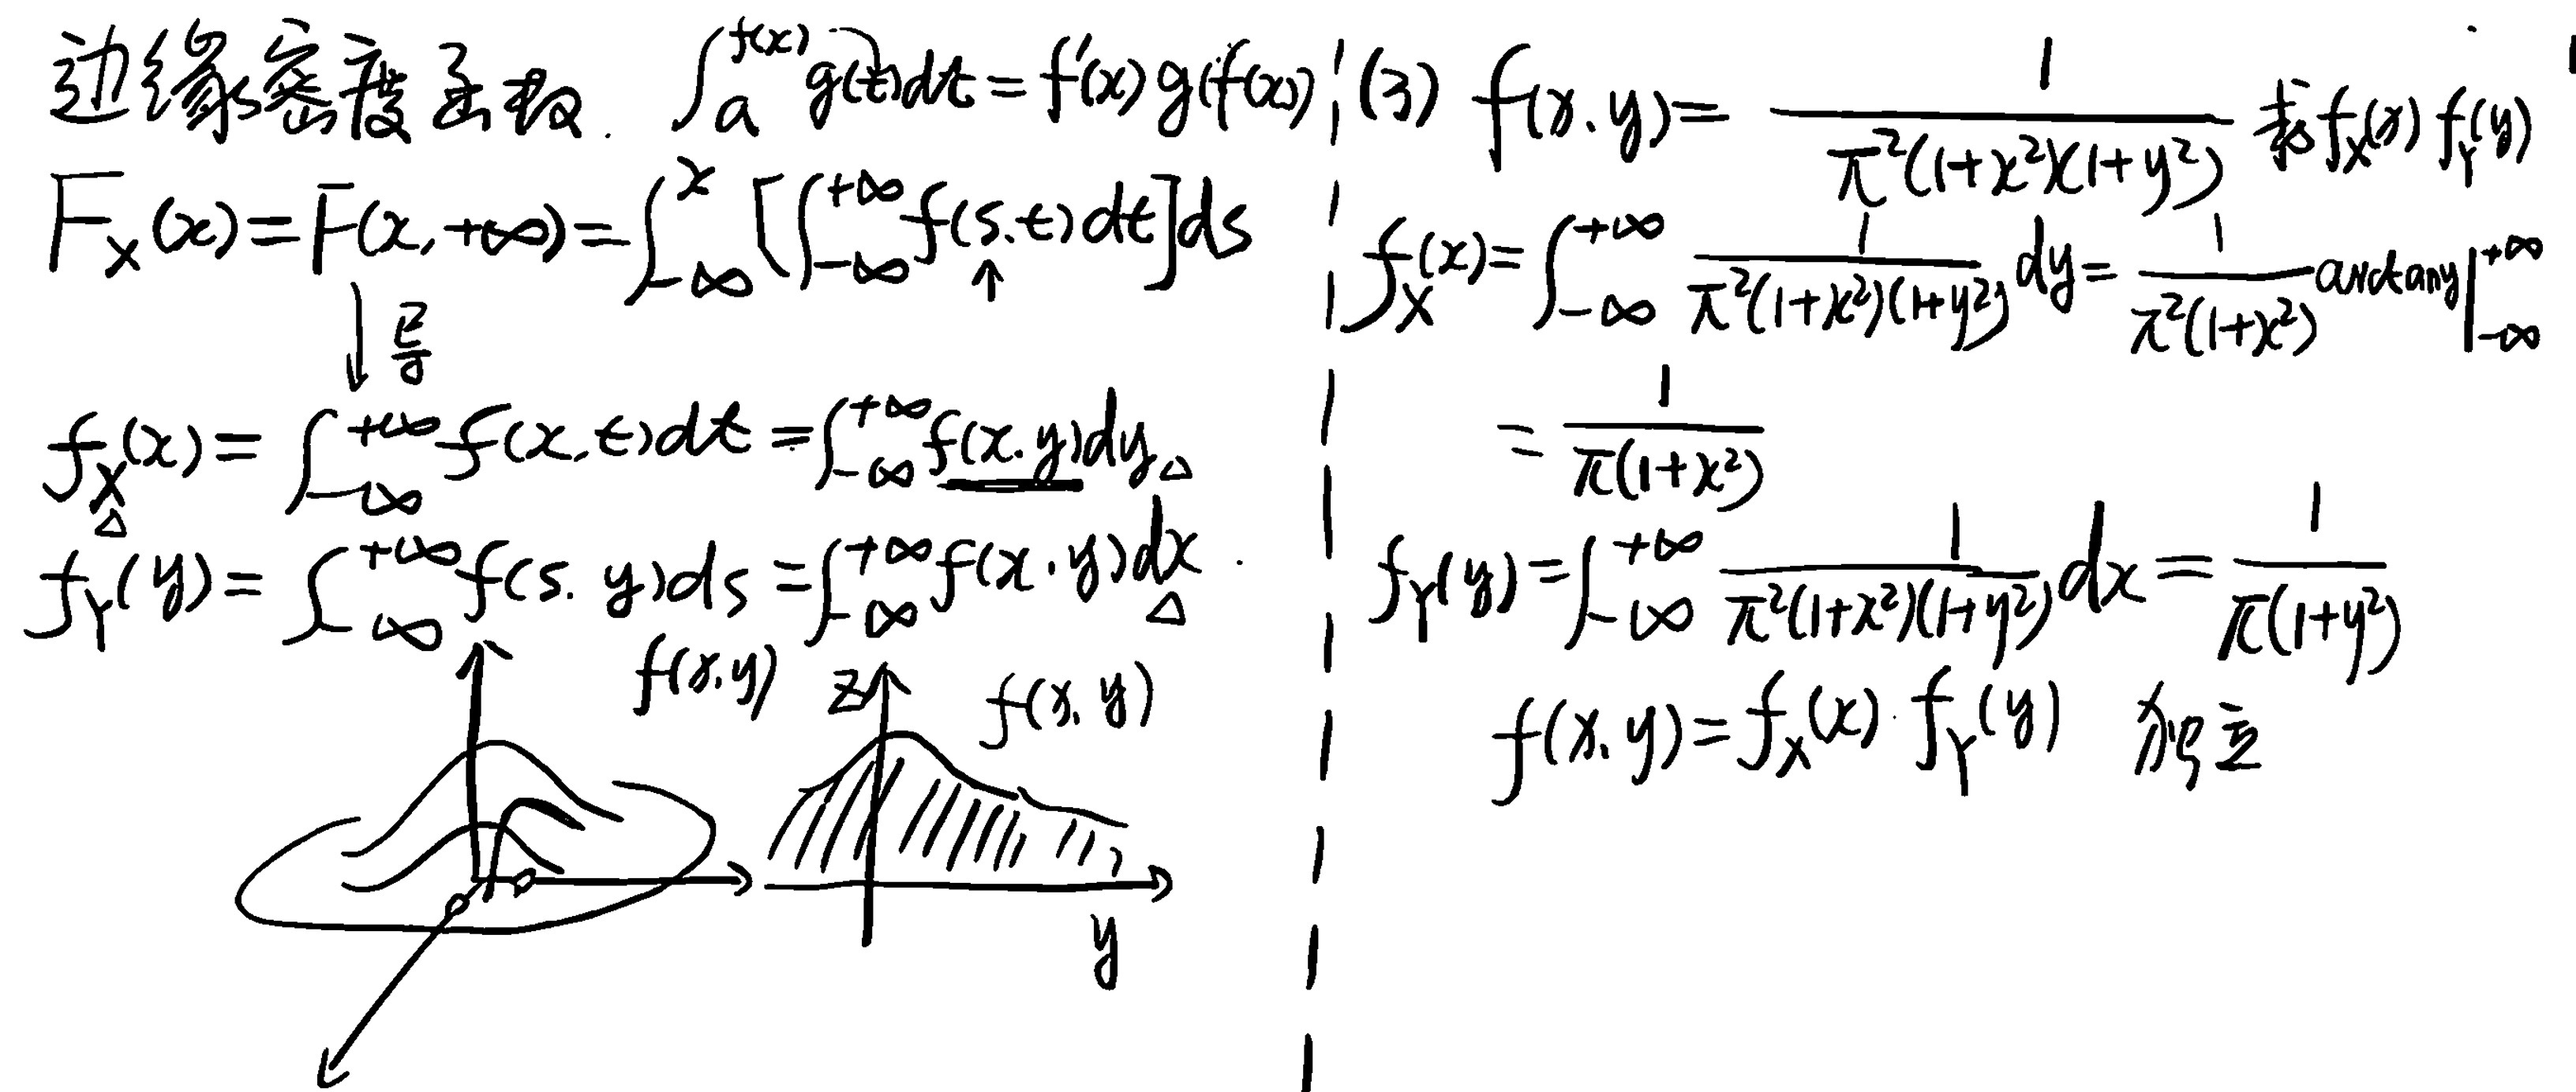 边缘密度函数. ∫_a^{f(x)} g(t)dt = f'(x) g(f(x))
F_X(x) = F(x, +∞) = ∫_{-∞}^{x} [∫_{-∞}^{+∞} f(s.t) dt] ds
↓ 导
f_X(x) = ∫_{-∞}^{+∞} f(x,t)dt = ∫_{-∞}^{+∞} f(x.y)dy
f_Y(y) = ∫_{-∞}^{+∞} f(s.y)ds = ∫_{-∞}^{+∞} f(x.y)dx
f(x.y)
z f(x.y)
y
(3) f(x.y) = 1/(π²(1+x²)(1+y²)) 求 f_X(x) f_Y(y)
f_X(x) = ∫_{-∞}^{+∞} 1/(π²(1+x²)(1+y²)) dy = 1/(π²(1+x²)) arctany |_{-∞}^{+∞}
= 1/(π(1+x²))
f_Y(y) = ∫_{-∞}^{+∞} 1/(π²(1+x²)(1+y²)) dx = 1/(π(1+y²))
f(x.y) = f_X(x) · f_Y(y) 独立